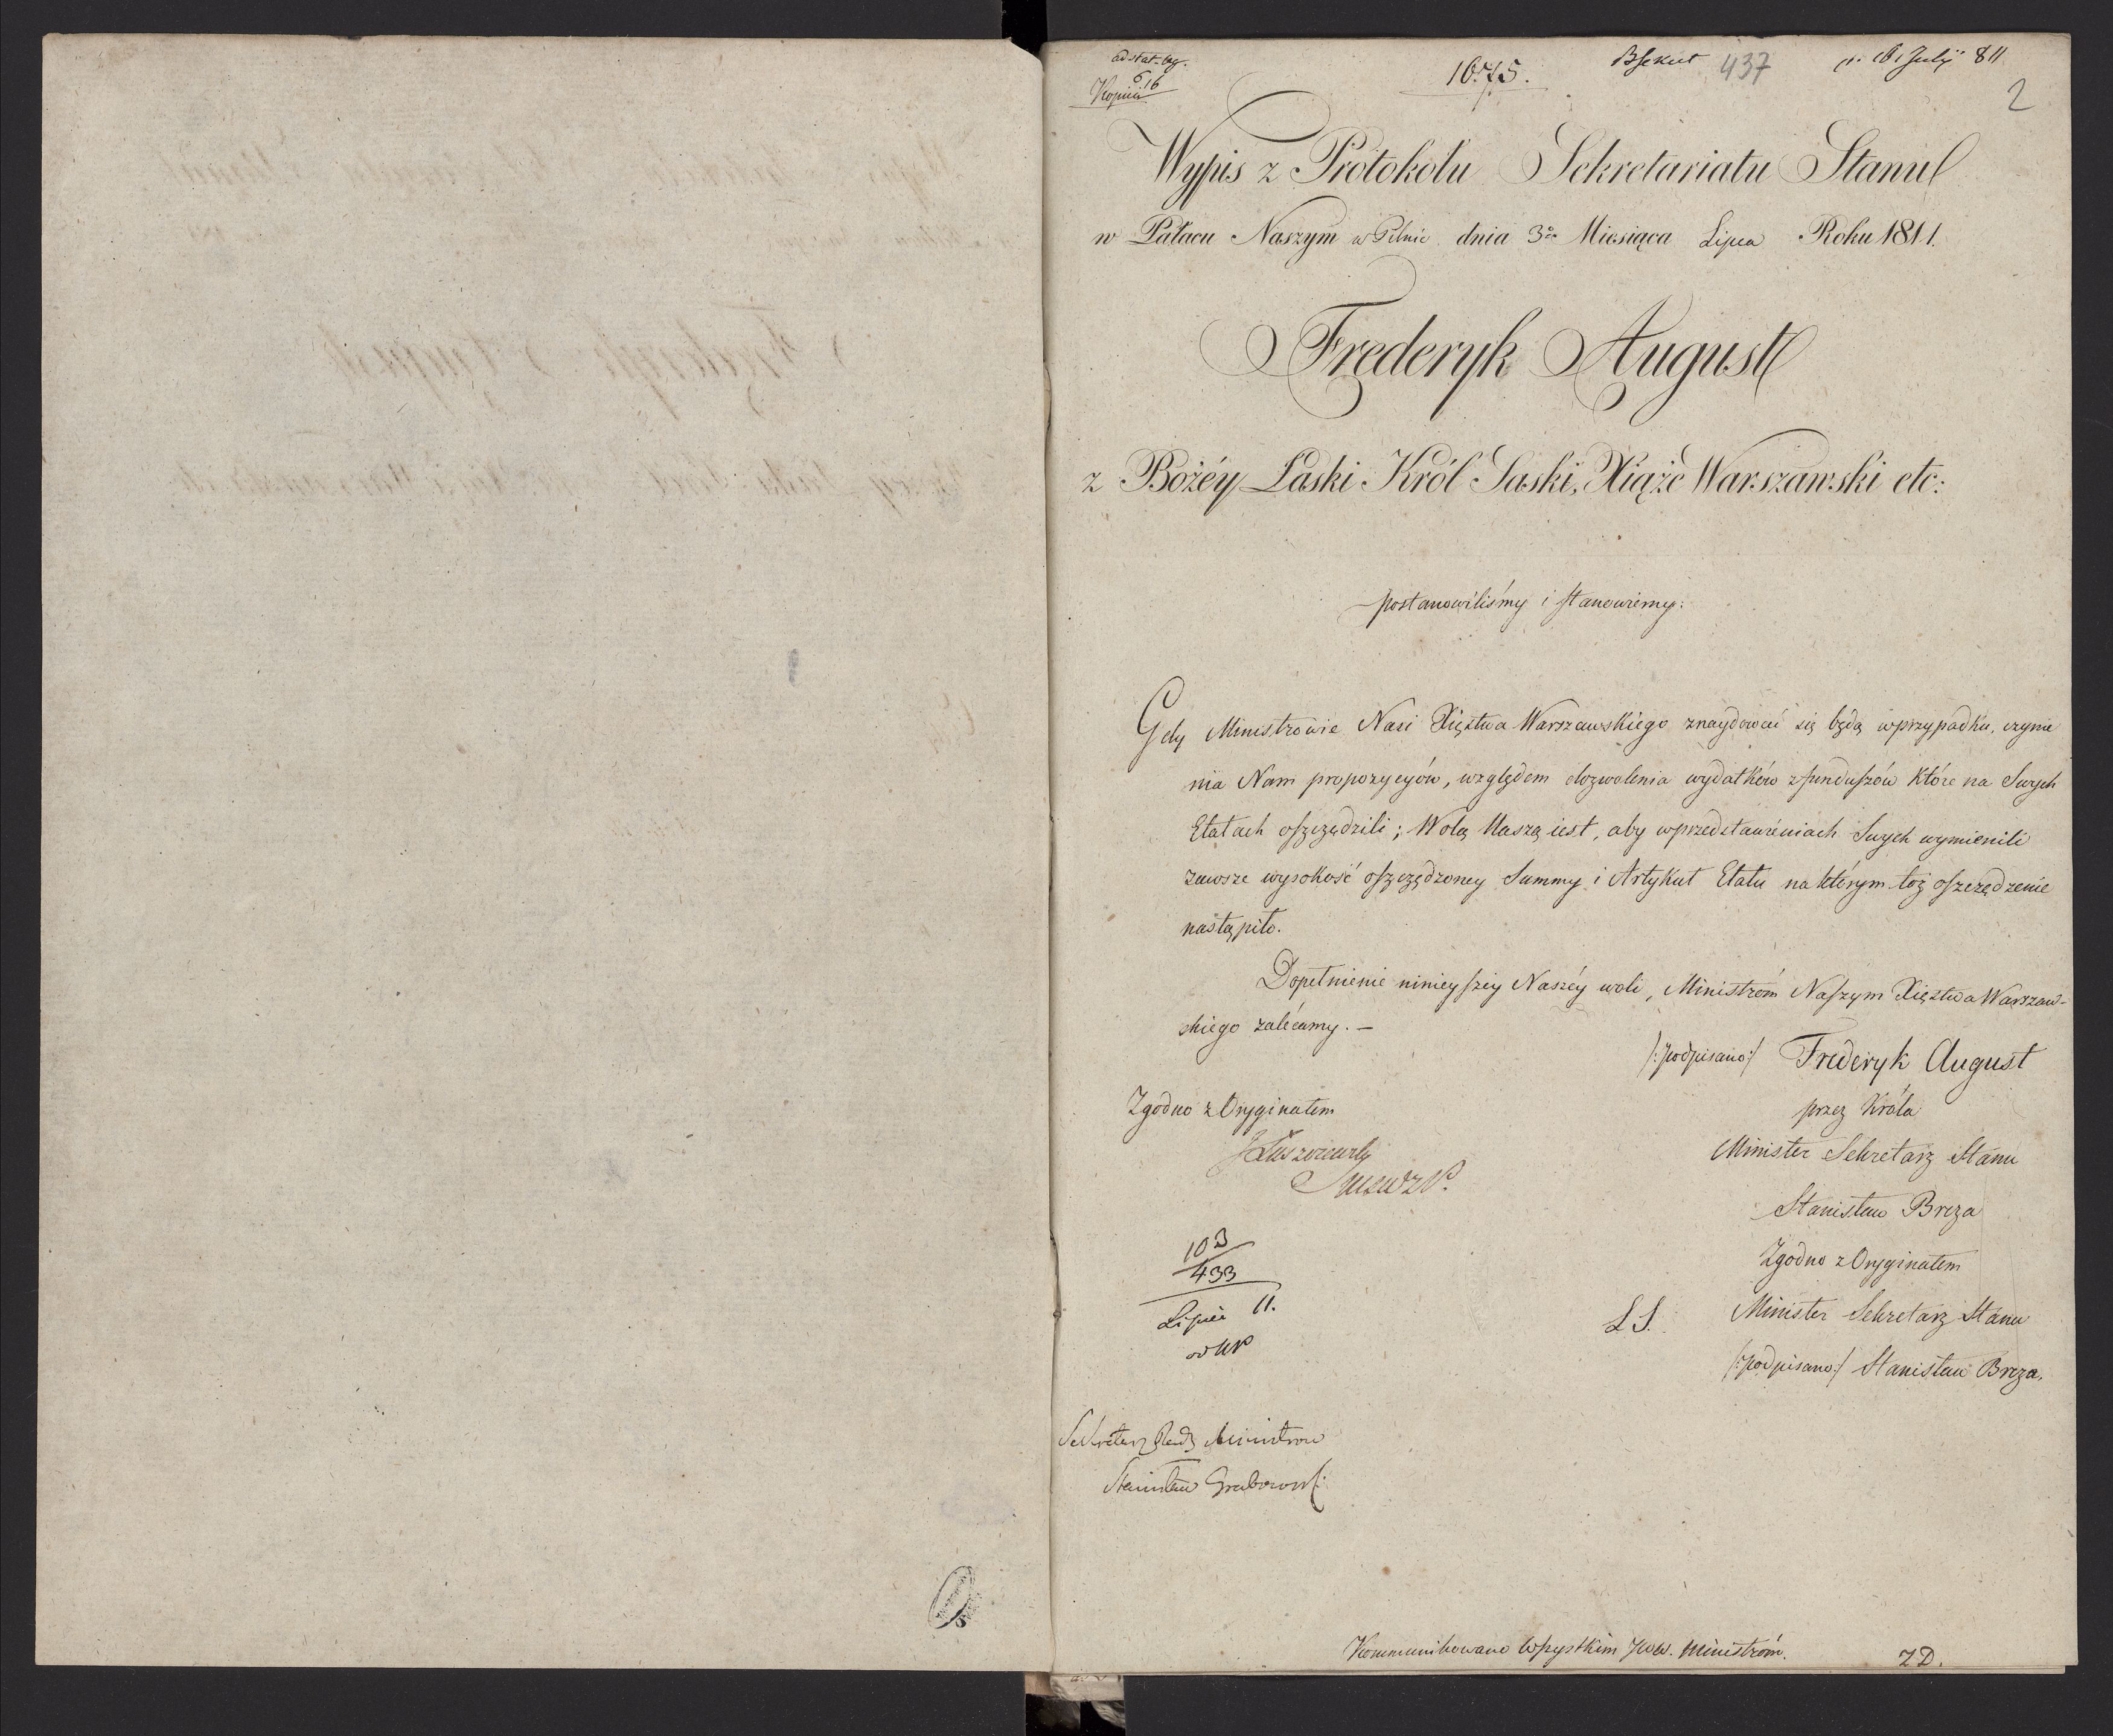 ad stat. bg.
6/16
Kopiia
1675.
437
pr. 16 Julÿ 811
2
Wypis z Protokołu Sekretariatu Stanu
w Pałacu Naszym w Pilnic dnia 3go Miesiąca Lipca Roku 1811.
Frederyk August
z Bożéy Łaski Król Saski, Xiąże Warszawski etc:
postanowiliśmy i stanowiemy:
Gdy Ministrowie Nasi Xięstwa Warszawskiego znaydować się będą w przypadku, czynie
nia Nam propozycyów, względem dozwolenia wydatków z funduszów które na Swych
Etatach oszczędzili; Wolą Naszą iest, aby w przedstawieniach Swych wymienili
zawsze wysokość oszczędzoney Summy i Artykuł Etatu na którym toż oszczędzenie
nastąpiło.
Dopełnienie ninieyszey Naszéy woli, Ministróm Naszym Xięstwa Warszaw-
skiego zalécamy. —
/:podpisano:/ Frederyk August
Zgodno z Oryginałem
przez Króla
Minister Sekretarz Stanu
Stanisław Breza
Zgodno z Oryginałem
103
433
Lipiec 11.
L S. Minister Sekretarz Stanu
/:podpisano:/ Stanisław Breza.
Sekretarz Rady Ministrow
Stanisław Grabowski
Kommunikowano wszystkim JWW. Ministróm.
ZD.